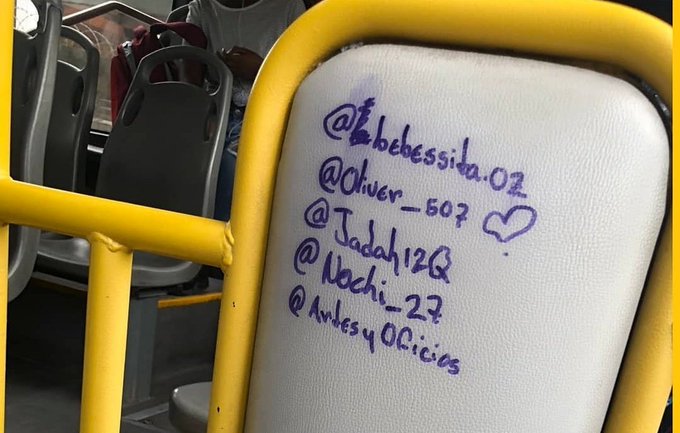 @bebessita.02
@Oliver_507
@Jadah12Q
@Nochi_27
@Artes y Oficios